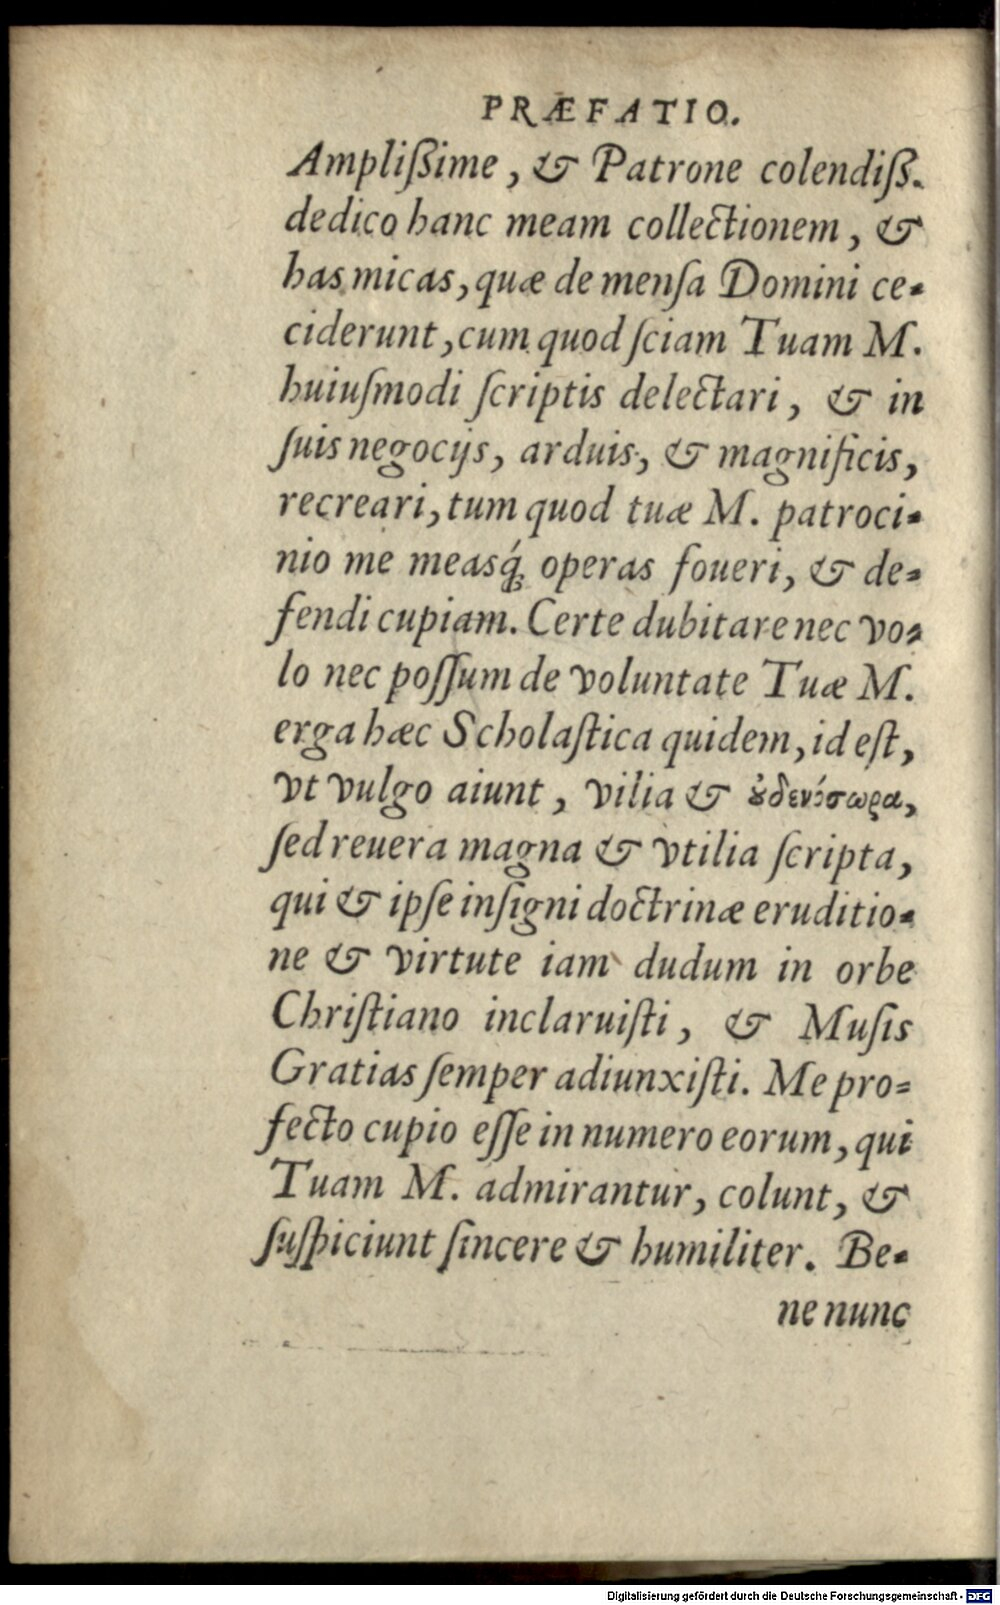 PRÆFATIO.
Ampliſsime, & Patrone colendiſs.
dedico hanc meam collectionem, &
has micas, quæ de menſa Domini ce-
ciderunt, cum quod ſciam Tuam M.
huiuſmodi ſcriptis delectari, & in
ſuis negocijs, arduis, & magnificis,
recreari, tum quod tuæ M. patroci-
nio me measq́; operas foueri, & de-
fendi cupiam. Certe dubitare nec vo-
lo nec poſſum de voluntate Tuæ M.
erga hæc Scholaſtica quidem, id eſt,
vt vulgo aiunt, vilia &
ſed reuera magna & vtilia ſcripta,
qui & ipſe inſigni doctrinæ eruditio-
ne & virtute iam dudum in orbe
Chriſtiano inclaruiſti, & Muſis
Gratias ſemper adiunxiſti. Me pro-
fecto cupio eſſe in numero eorum, qui
Tuam M. admirantur, colunt, &
ſuſpiciunt ſincere & humiliter. Be-
ne nunc
Digitalisierung gefördert durch die Deutsche Forschungsgemeinschaft - DFG